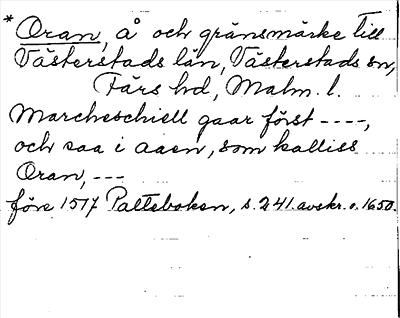 * Oran, å och gränsmärke till
Västerstads län, Västerstads sn,
Färs hd, Malm. l.
Marcheschiell gaar först ----,
och saa i aaen, som kalliss
Oran, ---
före 1517 Palteboken, s. 241. avskr. o. 1650.